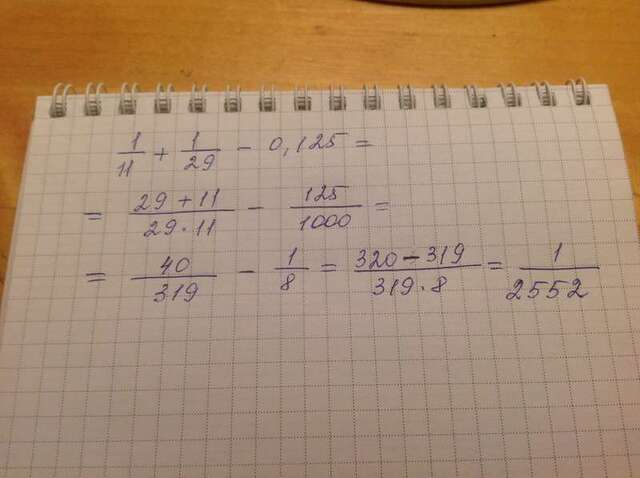 1/11 + 1/29 - 0,125 =
= (29 + 11)/(29 · 11) - 125/1000 =
= 40/319 - 1/8 = (320 - 319)/(319 · 8) = 1/2552